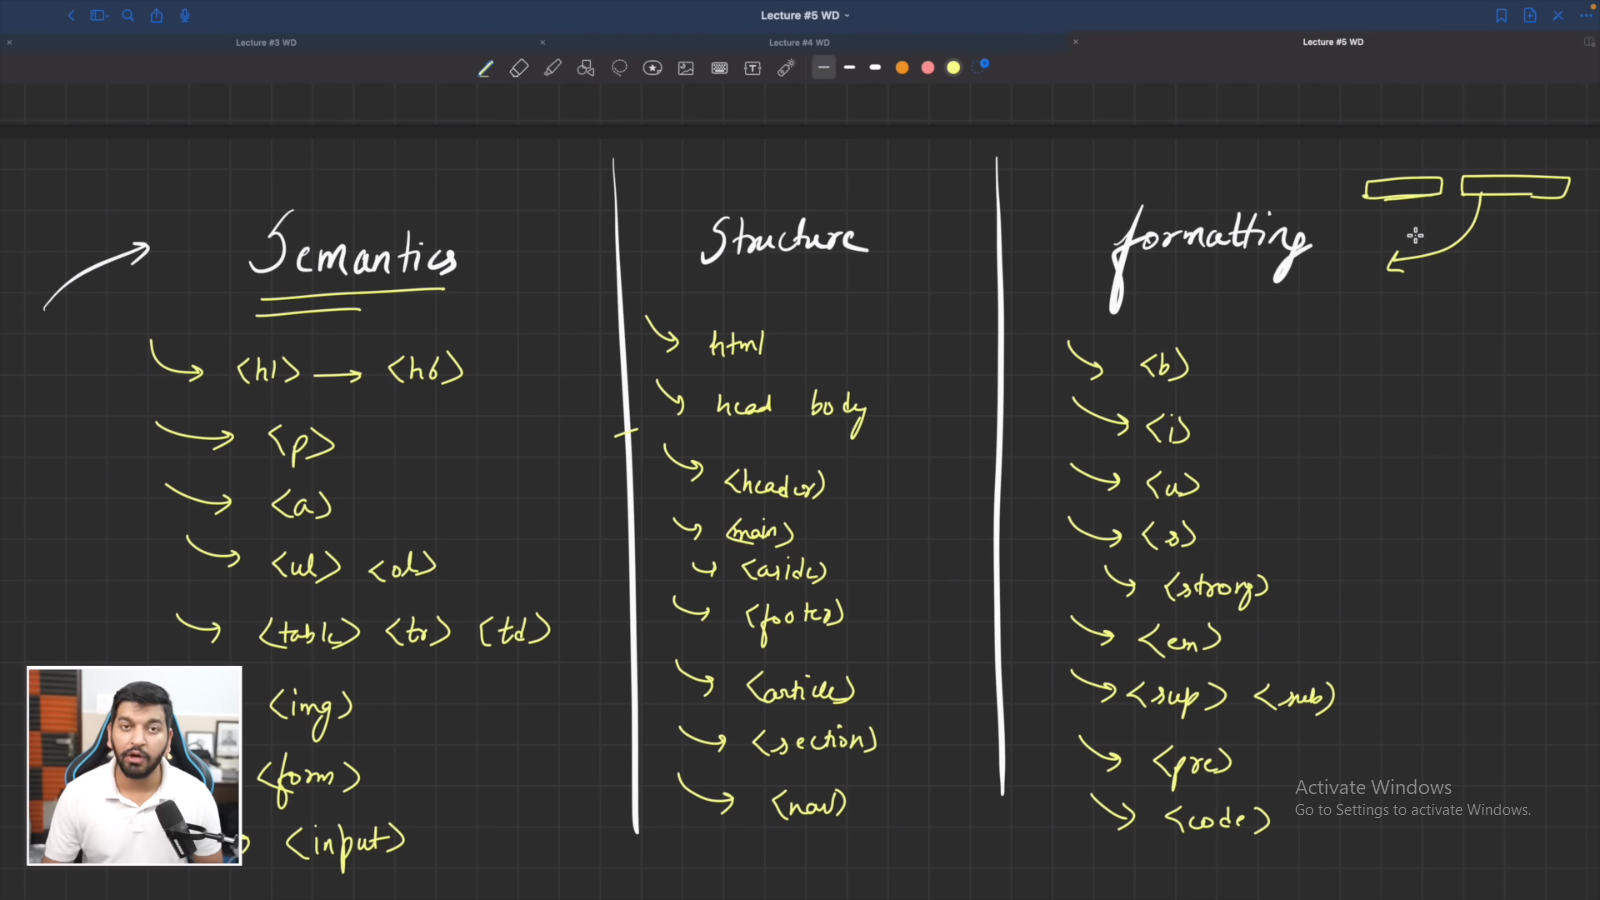 Lecture #5 WD
Lecture #3 WD
Lecture #4 WD
Lecture #5 WD
Semantics
<h1> → <h6>
<p>
<a>
<ul> <ol>
<table> <tr> <td>
<img>
<form>
<input>
Structure
html
head body
<header>
<main>
<aside>
<footer>
<article>
<section>
<nav>
formatting
<b>
<i>
<u>
<s>
<strong>
<em>
<sup> <sub>
<pre>
<code>
Activate Windows
Go to Settings to activate Windows.